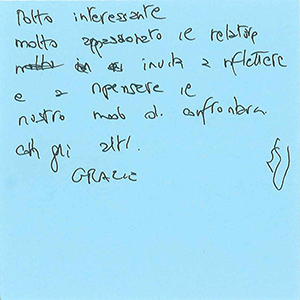 Molto interessante
molto appassionato il relatore
invita a riflettere
e a ripensare il
nostro modo di confrontarci
con gli altri.
GRAZIE